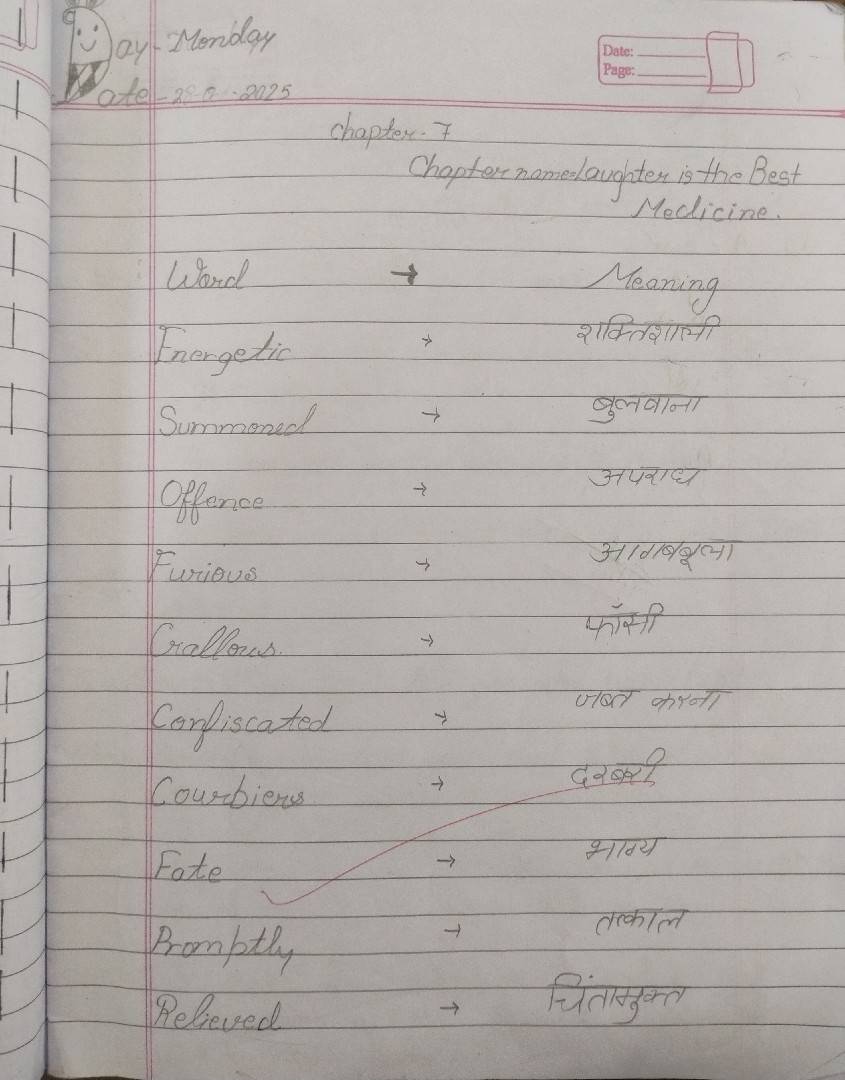 Day - Monday
Date: 
Page: 
Date - 2025
Chapter - 7
Chapter name = Laughter is the Best
Medicine.
Word → Meaning
Energetic → शक्तिशाली
Summoned → बुलवाना
Offence → अपराध
Furious → आगबबूला
Grallows. → फाँसी
Confiscated → जब्त करना
Courbiers → दरबरी
Fate → भाग्य
Promptly → तत्काल
Relieved → चिंतामुक्त